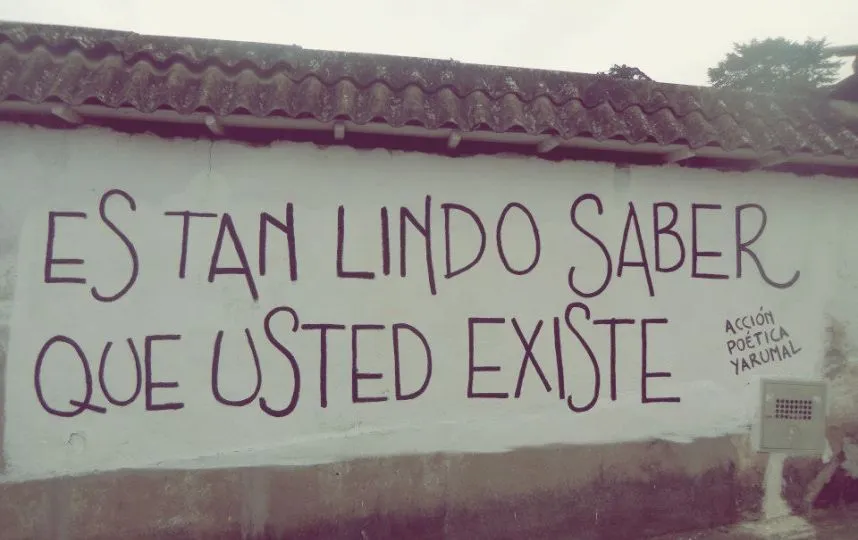 ES TAN LINDO SABER
QUE USTED EXISTE
ACCIÓN
POÉTICA
YARUMAL